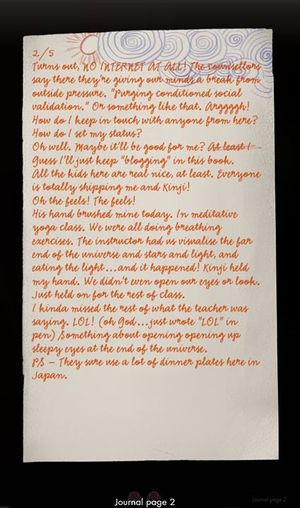 2/5
Turns out, NO INTERNET AT ALL! The counsellors
say there they're giving our minds a break from
outside pressure. "Purging conditioned social
validation." Or something like that. Argggh!
How do I keep in touch with anyone from here?
How do I set my status?
Oh well. Maybe it'll be good for me? At least I
Guess I'll just keep "blogging" in this book.
All the kids here are real nice, at least. Everyone
is totally shipping me and Kinji!
Oh the feels! The feels!
His hand brushed mine today. In meditative
yoga class. We were all doing breathing
exercises. The instructor had us visualise the far
end of the universe and stars and light, and
eating the light...and it happened! Kinji held
my hand. We didn't even open our eyes or look.
Just held on for the rest of class.
I kinda missed the rest of what the teacher was
saying. LOL! (oh God...just wrote "LOL" in
pen) Something about opening opening up
sleepy eyes at the end of the universe.
PS – They sure use a lot of dinner plates here in
Japan.
Journal page 2
Journal page 2